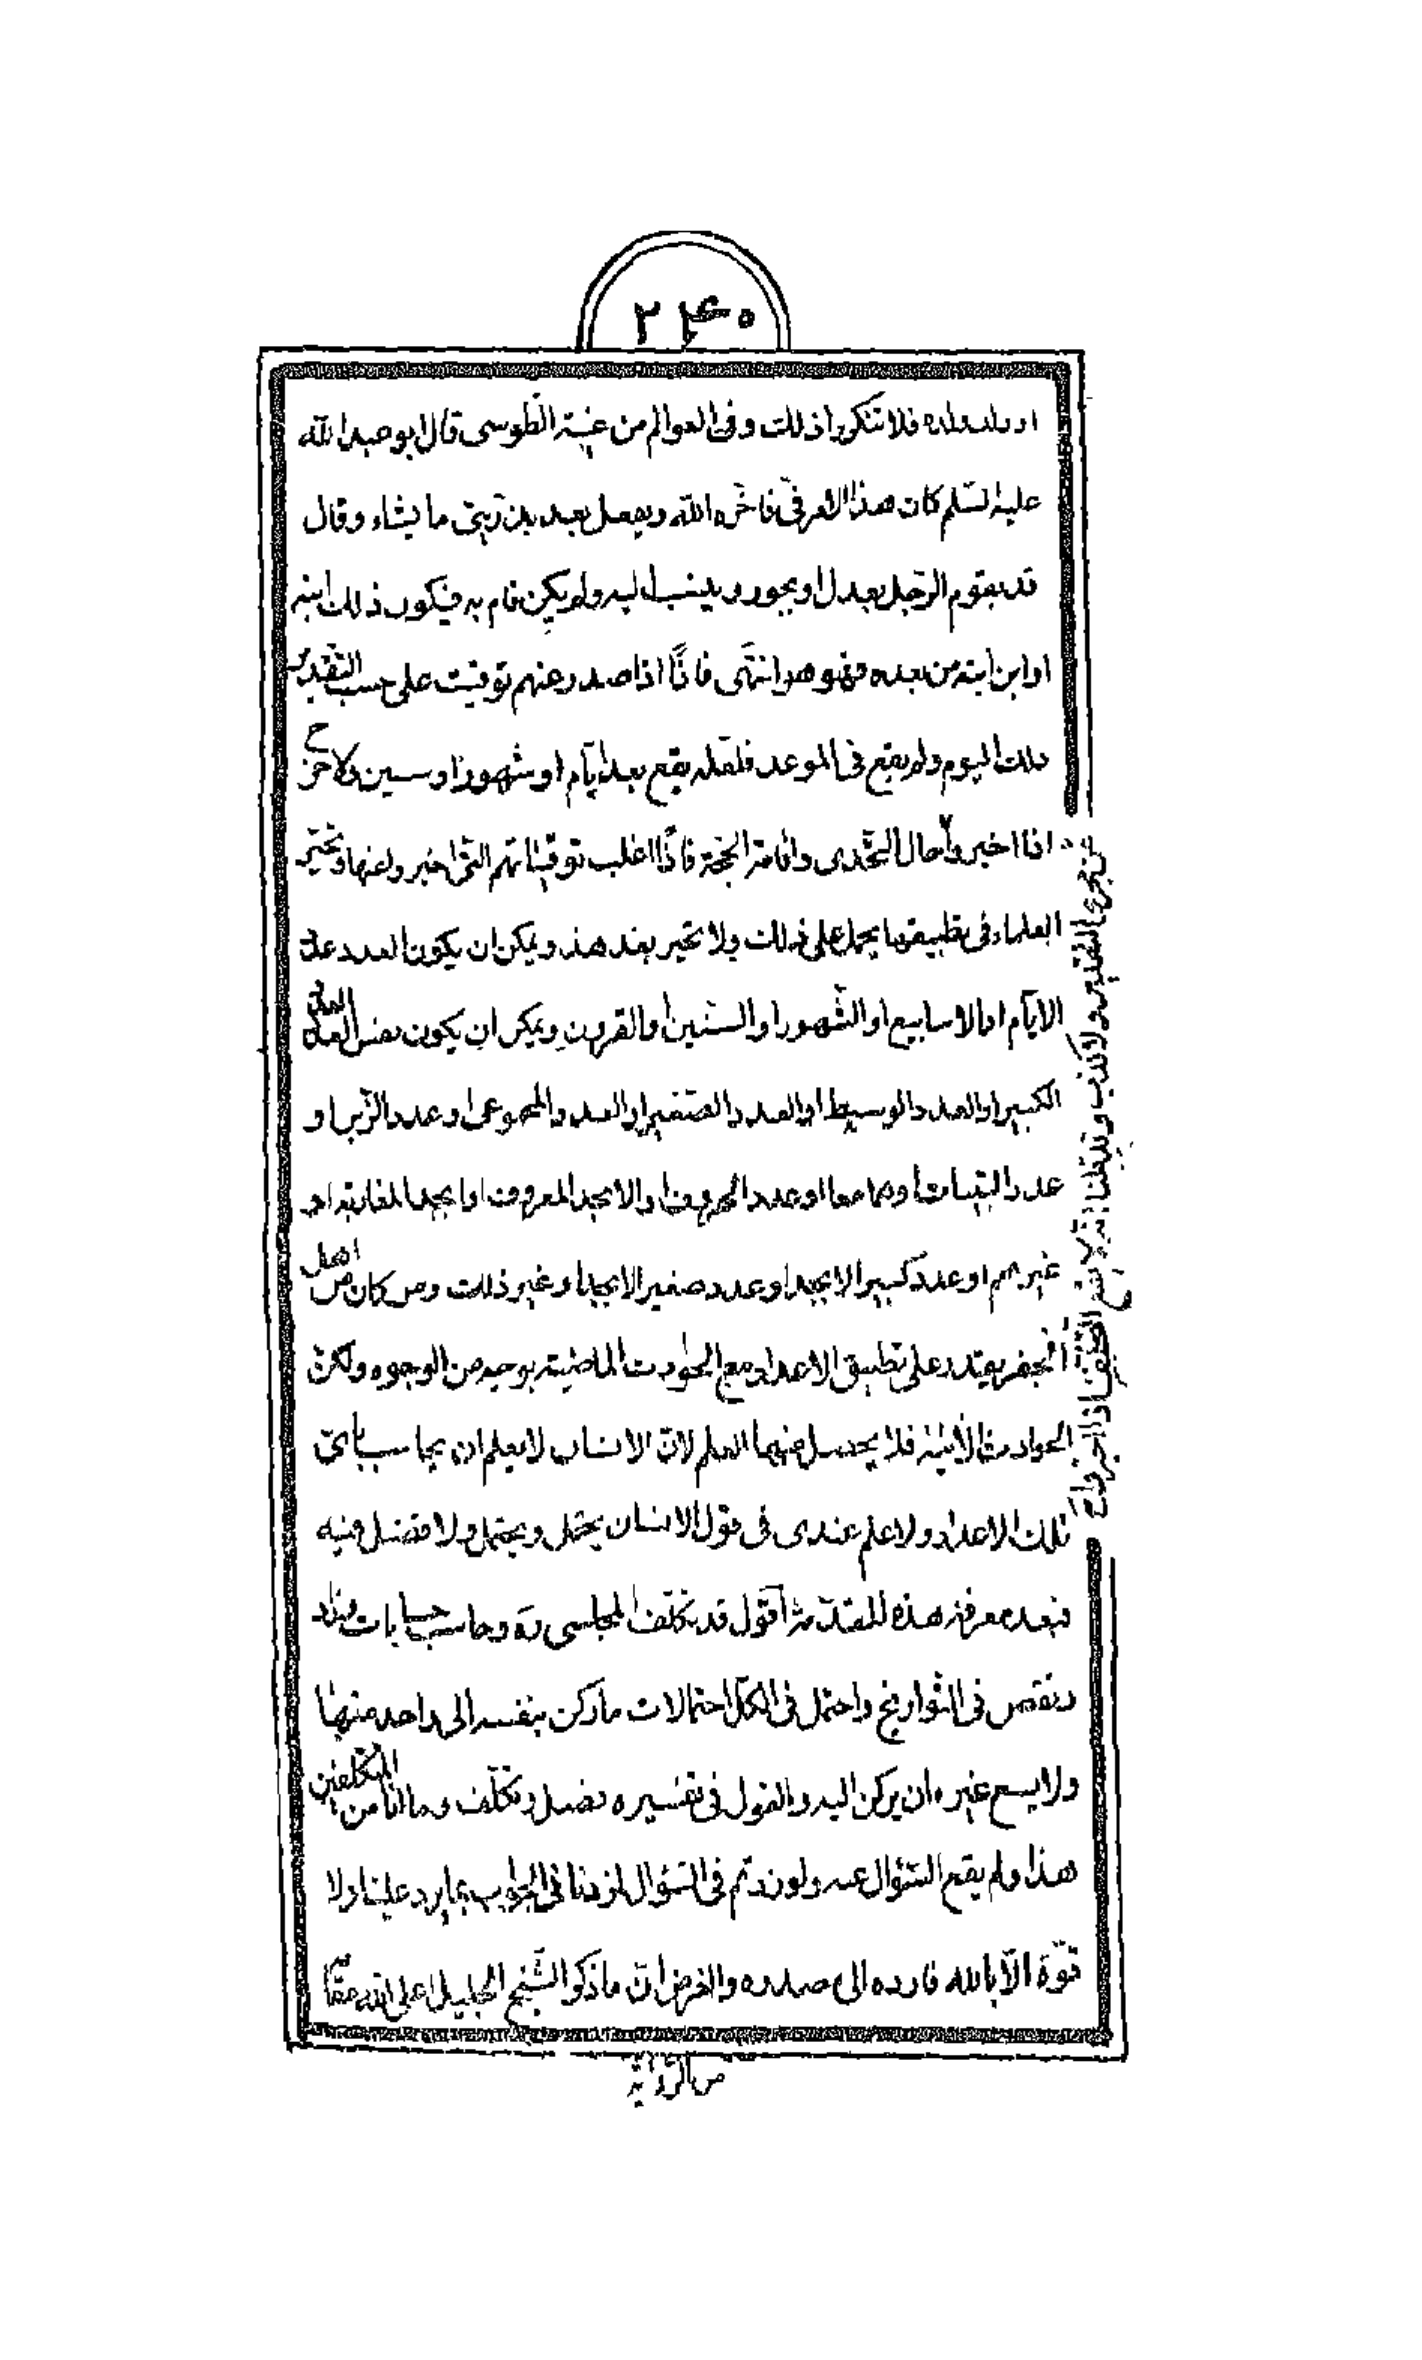 ۲۴۰
او ولد ولده فلا تنكروا ذلك وفى العوالم من غيبة الطّوسى قال ابو عبد الله
عليه السّلم كان هذا الامر فىّ فاخّره الله ويفعل بعد بذرّيتى ما يشاء وقال
قد يقوم الرّجل بعدل او بجور وينسب اليه ولم يكن قام به فيكون ذلك ابنه
او ابن ابنه من بعده فهو هو انتهى فاذًا اذا صدر عنهم توقيت على حسب التقدير
ذلك اليوم ولم يقع فى الموعد فلعله يقع بعد ايّام او شهور او سنين ولا حرج
اذا اخبروا حال التحّدى واقامة الحجّة فاذًا اغلب توقيتاتهم التى اخبروا عنها وتحيّر
العلماء فى تطبيقها يحمل على ذلك ولا تحير بعد هذا ويمكن ان يكون العدد عدد
الايّام او الاسابيع او الشّهور او السنين او القرون ويمكن ان يكون بعض العدد
الكبير او العدد الوسيط او العدد الصّغير او العدد المجموعى او عدد الزّبر او
عدد البيّنات او هما معا او عدد الحروف او الابجد المعروف او ابجد المغاربة او
غيرهم او عدد كبير الابجد او عدد صغير الابجد او غير ذلك ومن كان من اهل
الجفر يقتدر على تطبيق الاعداد مع الحوادث الماضية بوجه من الوجوه ولكن
الحوادث الآتية فلا يحصل منها العلم لانّ الانسان لا يعلم ان يحاسب باىّ
تلك الاعداد ولا علم عندى فى قول الانسان يحتمل ويحتمل ولا فضل فيه
فبعد معرفة هذه المقدّمة اقول قد تكلّف المجلسى ره وحاسب حسابات وزاد
ونقص فى التواريخ واحتمل فى الكلّ احتمالات ما ركن بنفسه الى واحد منها
ولا يسع غيره ان يركن اليه والقول فى تفسيره فضل وتكلّف وما انا من المتكلفين
هذا ولم يقع السّؤال عنه ولو زدتم فى السّؤال لزدنا فى الجواب بما يرد علينا ولا
قوّة الّا بالله فارده الى صدره والغرض انّ ما ذكر الشّيخ الجليل اعلى الله مقامه
من الرّواية